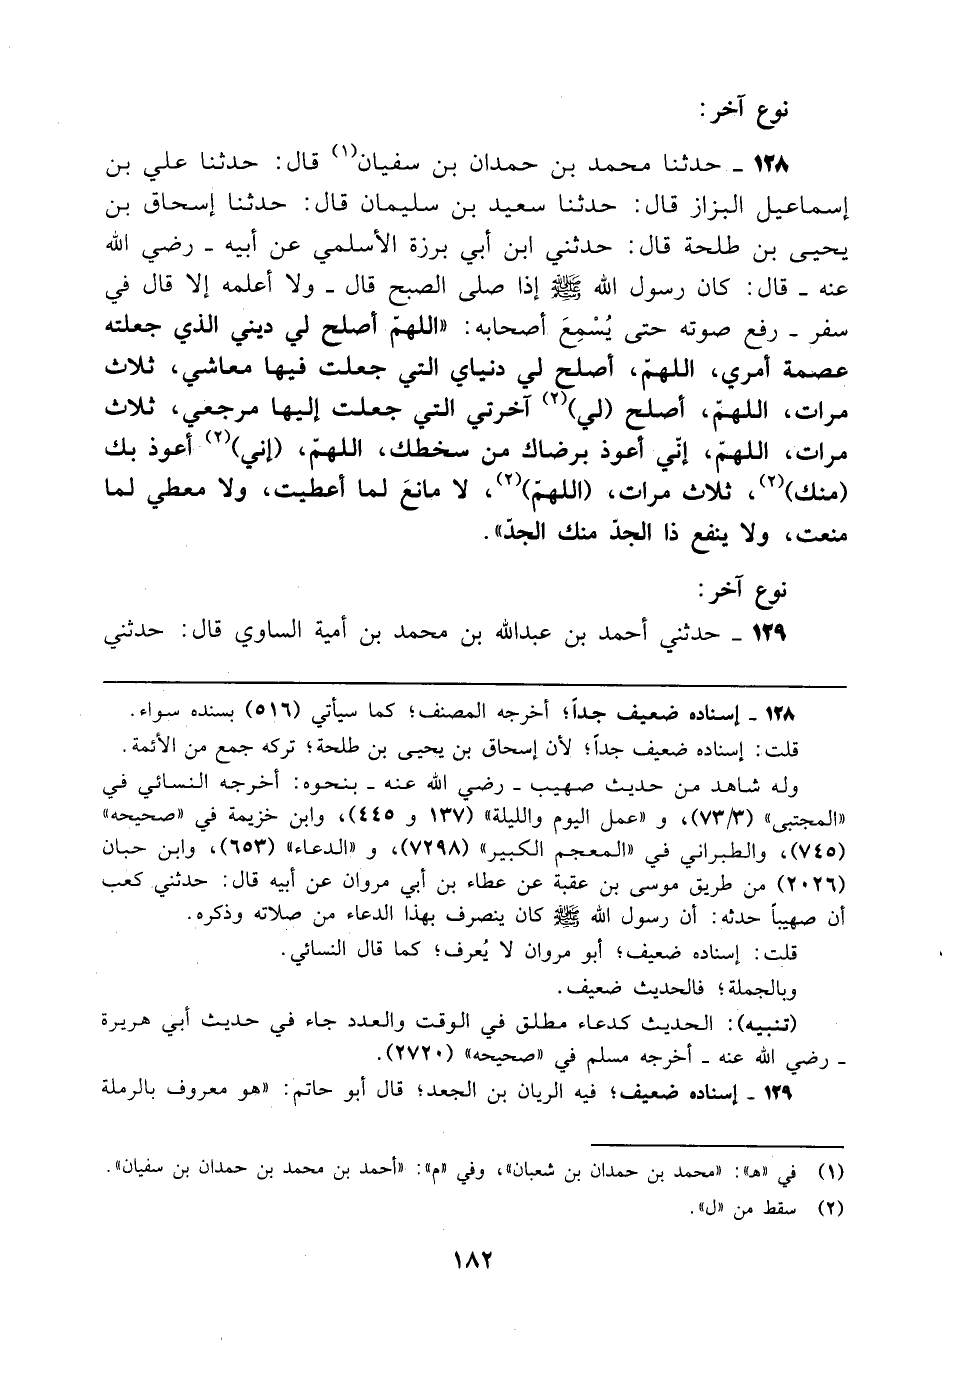 نوع آخر:
١٢٨ ـ حدثنا محمد بن حمدان بن سفيان(١) قال: حدثنا علي بن
إسماعيل البزاز قال: حدثنا سعيد بن سليمان قال: حدثنا إسحاق بن
يحيى بن طلحة قال: حدثني ابن أبي برزة الأسلمي عن أبيه ـ رضي الله
عنه ـ قال: كان رسول الله ﷺ إذا صلى الصبح قال ـ ولا أعلمه إلا قال في
سفر ـ رفع صوته حتى يُسْمِعَ أصحابه: «اللهمّ أصلح لي ديني الذي جعلته
عصمة أمري، اللهمّ، أصلح لي دنياي التي جعلت فيها معاشي، ثلاث
مرات، اللهمّ، أصلح (لي)(٢) آخرتي التي جعلت إليها مرجعي، ثلاث
مرات، اللهمّ، إنّي أعوذ برضاك من سخطك، اللهمّ، (إني)(٢) أعوذ بك
(منك)(٢)، ثلاث مرات، (اللهمّ)(٢)، لا مانعَ لما أعطيت، ولا معطي لما
منعت، ولا ينفع ذا الجدّ منك الجدّ».
نوع آخر:
١٢٩ ـ حدثني أحمد بن عبدالله بن محمد بن أمية الساوي قال: حدثني
١٢٨ ـ إسناده ضعيف جداً؛ أخرجه المصنف؛ كما سيأتي (٥١٦) بسنده سواء.
قلت: إسناده ضعيف جداً؛ لأن إسحاق بن يحيى بن طلحة؛ تركه جمع من الأئمة.
وله شاهد من حديث صهيب ـ رضي الله عنه ـ بنحوه: أخرجه النسائي في
«المجتبى» (٧٣/٣)، و «عمل اليوم والليلة» (١٣٧ و ٤٤٥)، وابن خزيمة في «صحيحه»
(٧٤٥)، والطبراني في «المعجم الكبير» (٧٢٩٨)، و «الدعاء» (٦٥٣)، وابن حبان
(٢٠٢٦) من طريق موسى بن عقبة عن عطاء بن أبي مروان عن أبيه قال: حدثني كعب
أن صهيباً حدثه: أن رسول الله ﷺ كان ينصرف بهذا الدعاء من صلاته وذكره.
قلت: إسناده ضعيف؛ أبو مروان لا يُعرف؛ كما قال النسائي.
وبالجملة؛ فالحديث ضعيف.
(تنبيه): الحديث كدعاء مطلق في الوقت والعدد جاء في حديث أبي هريرة
ـ رضي الله عنه ـ أخرجه مسلم في «صحيحه» (٢٧٢٠).
١٢٩ ـ إسناده ضعيف؛ فيه الريان بن الجعد؛ قال أبو حاتم: «هو معروف بالرملة
(١) في «هـ»: «محمد بن حمدان بن شعبان»، وفي «م»: «أحمد بن محمد بن حمدان بن سفيان».
(٢) سقط من «ل».
١٨٢